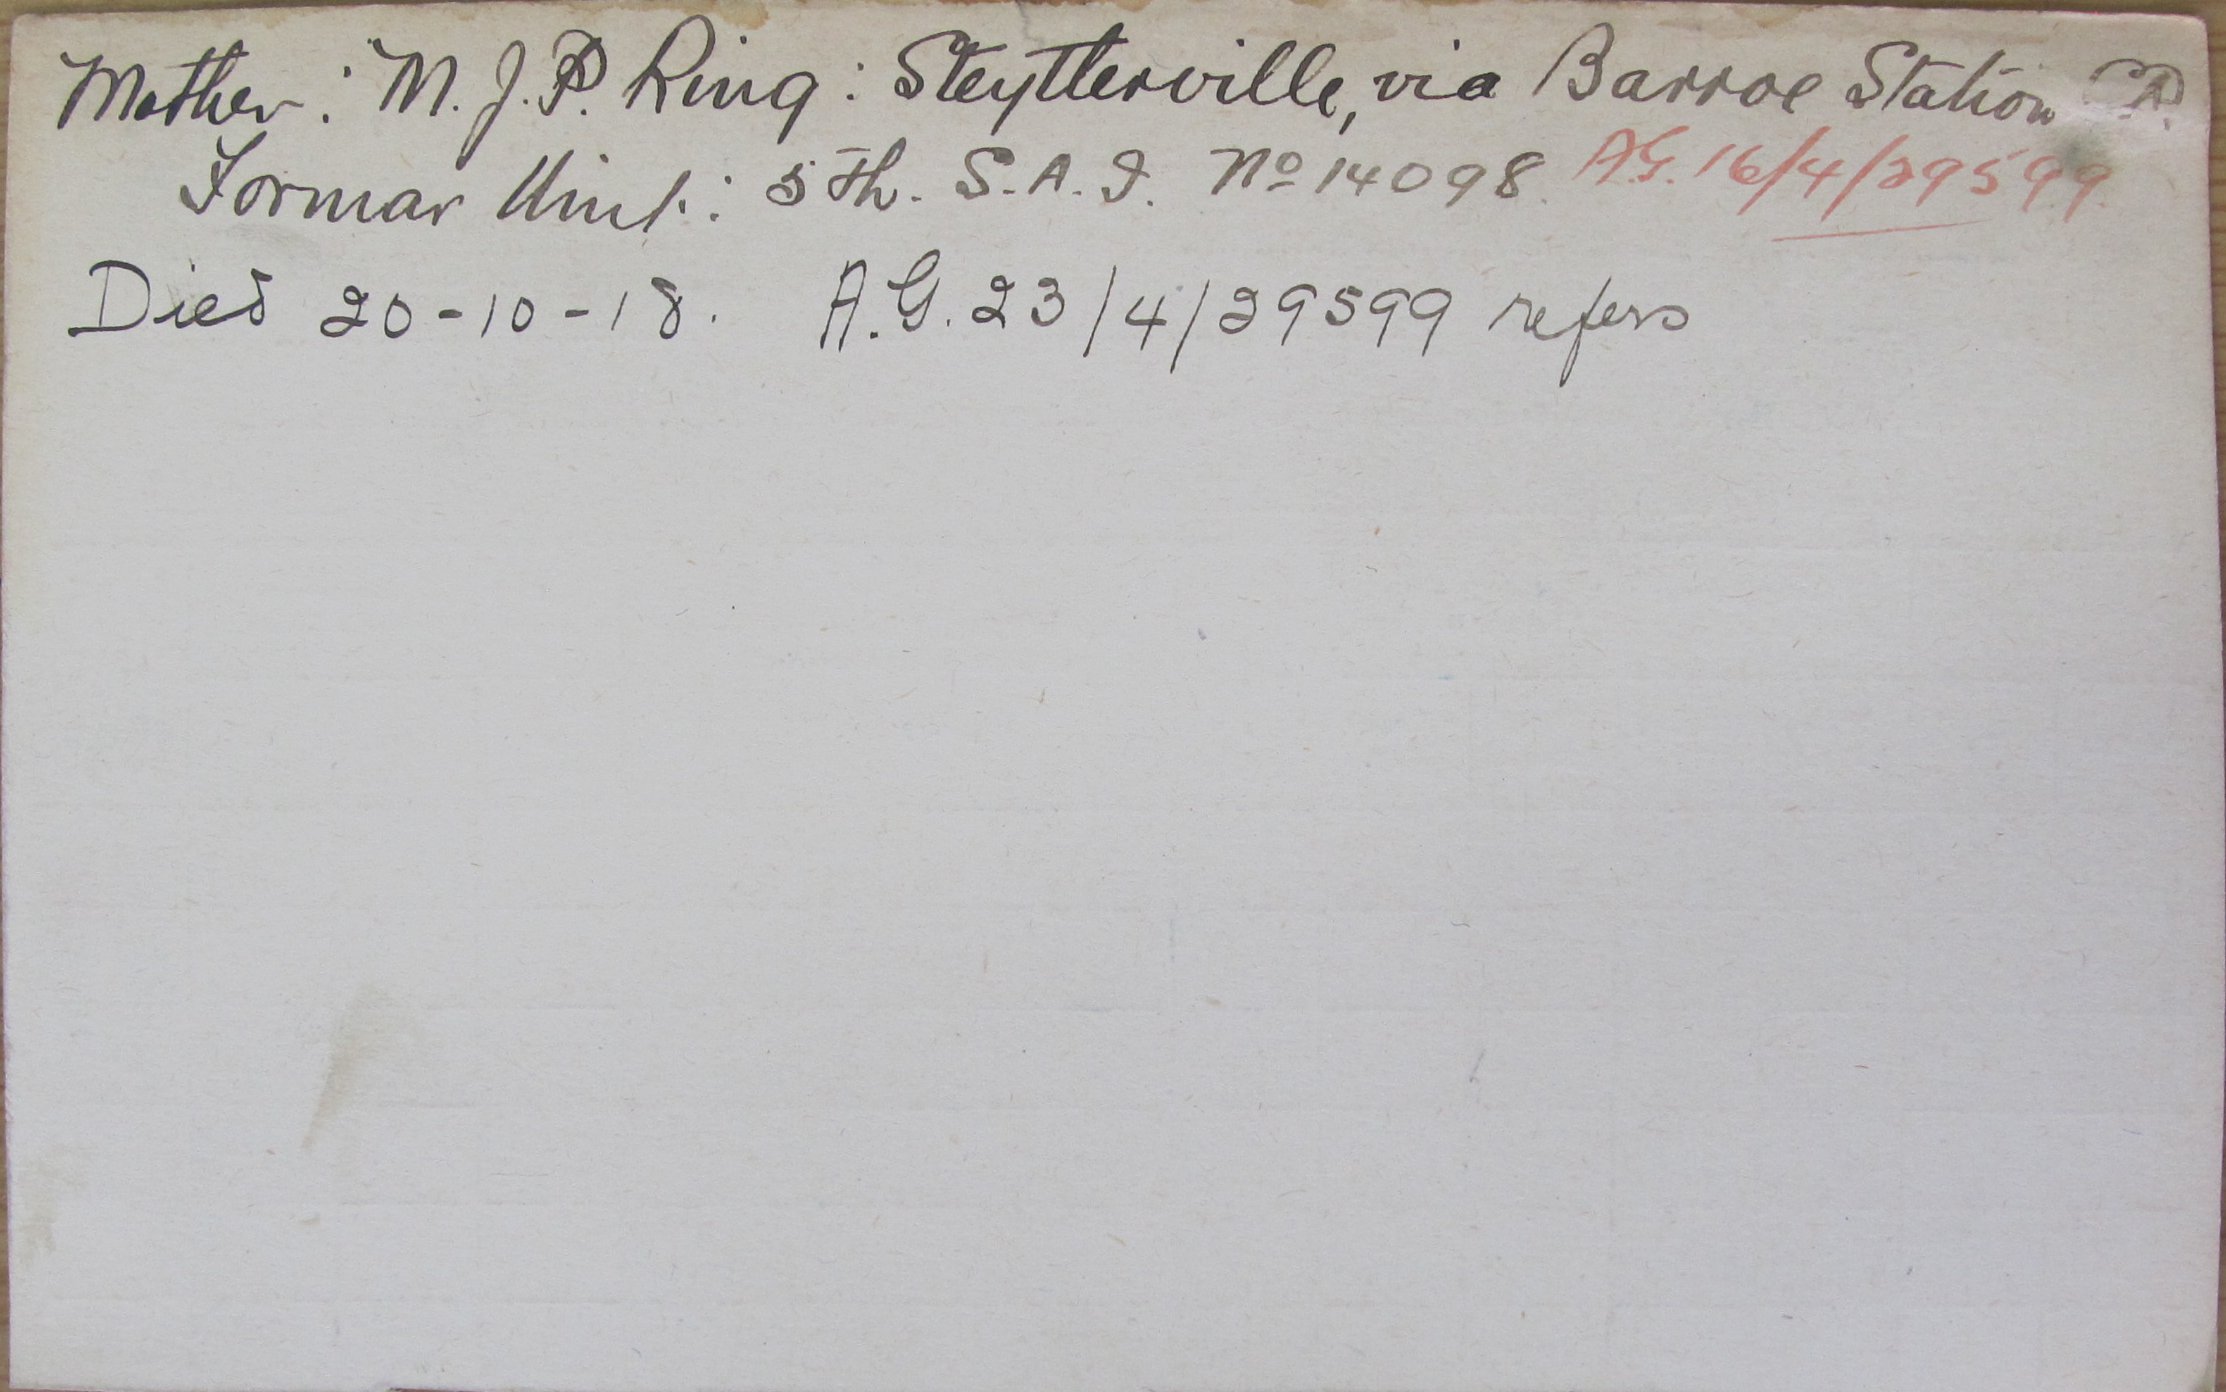 Mother: M. J. P. Ring: Steytlerville, via Barroe Station C.P.
Former Unit: 5th. S.A.I. No 14098. A.G. 16/4/29599.
Died 20-10-18. A.G. 23/4/29599 refers